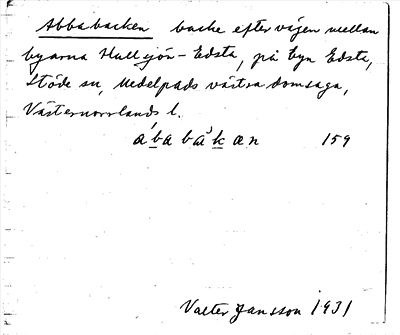 Abbabacken backe efter vägen mellan
byarna Hullsjön - Edsta, på byn Edsta,
Stöde sn, Medelpads västra domsaga,
Västernorrlands l.
ábabàkan 159
Valter Jansson 1931